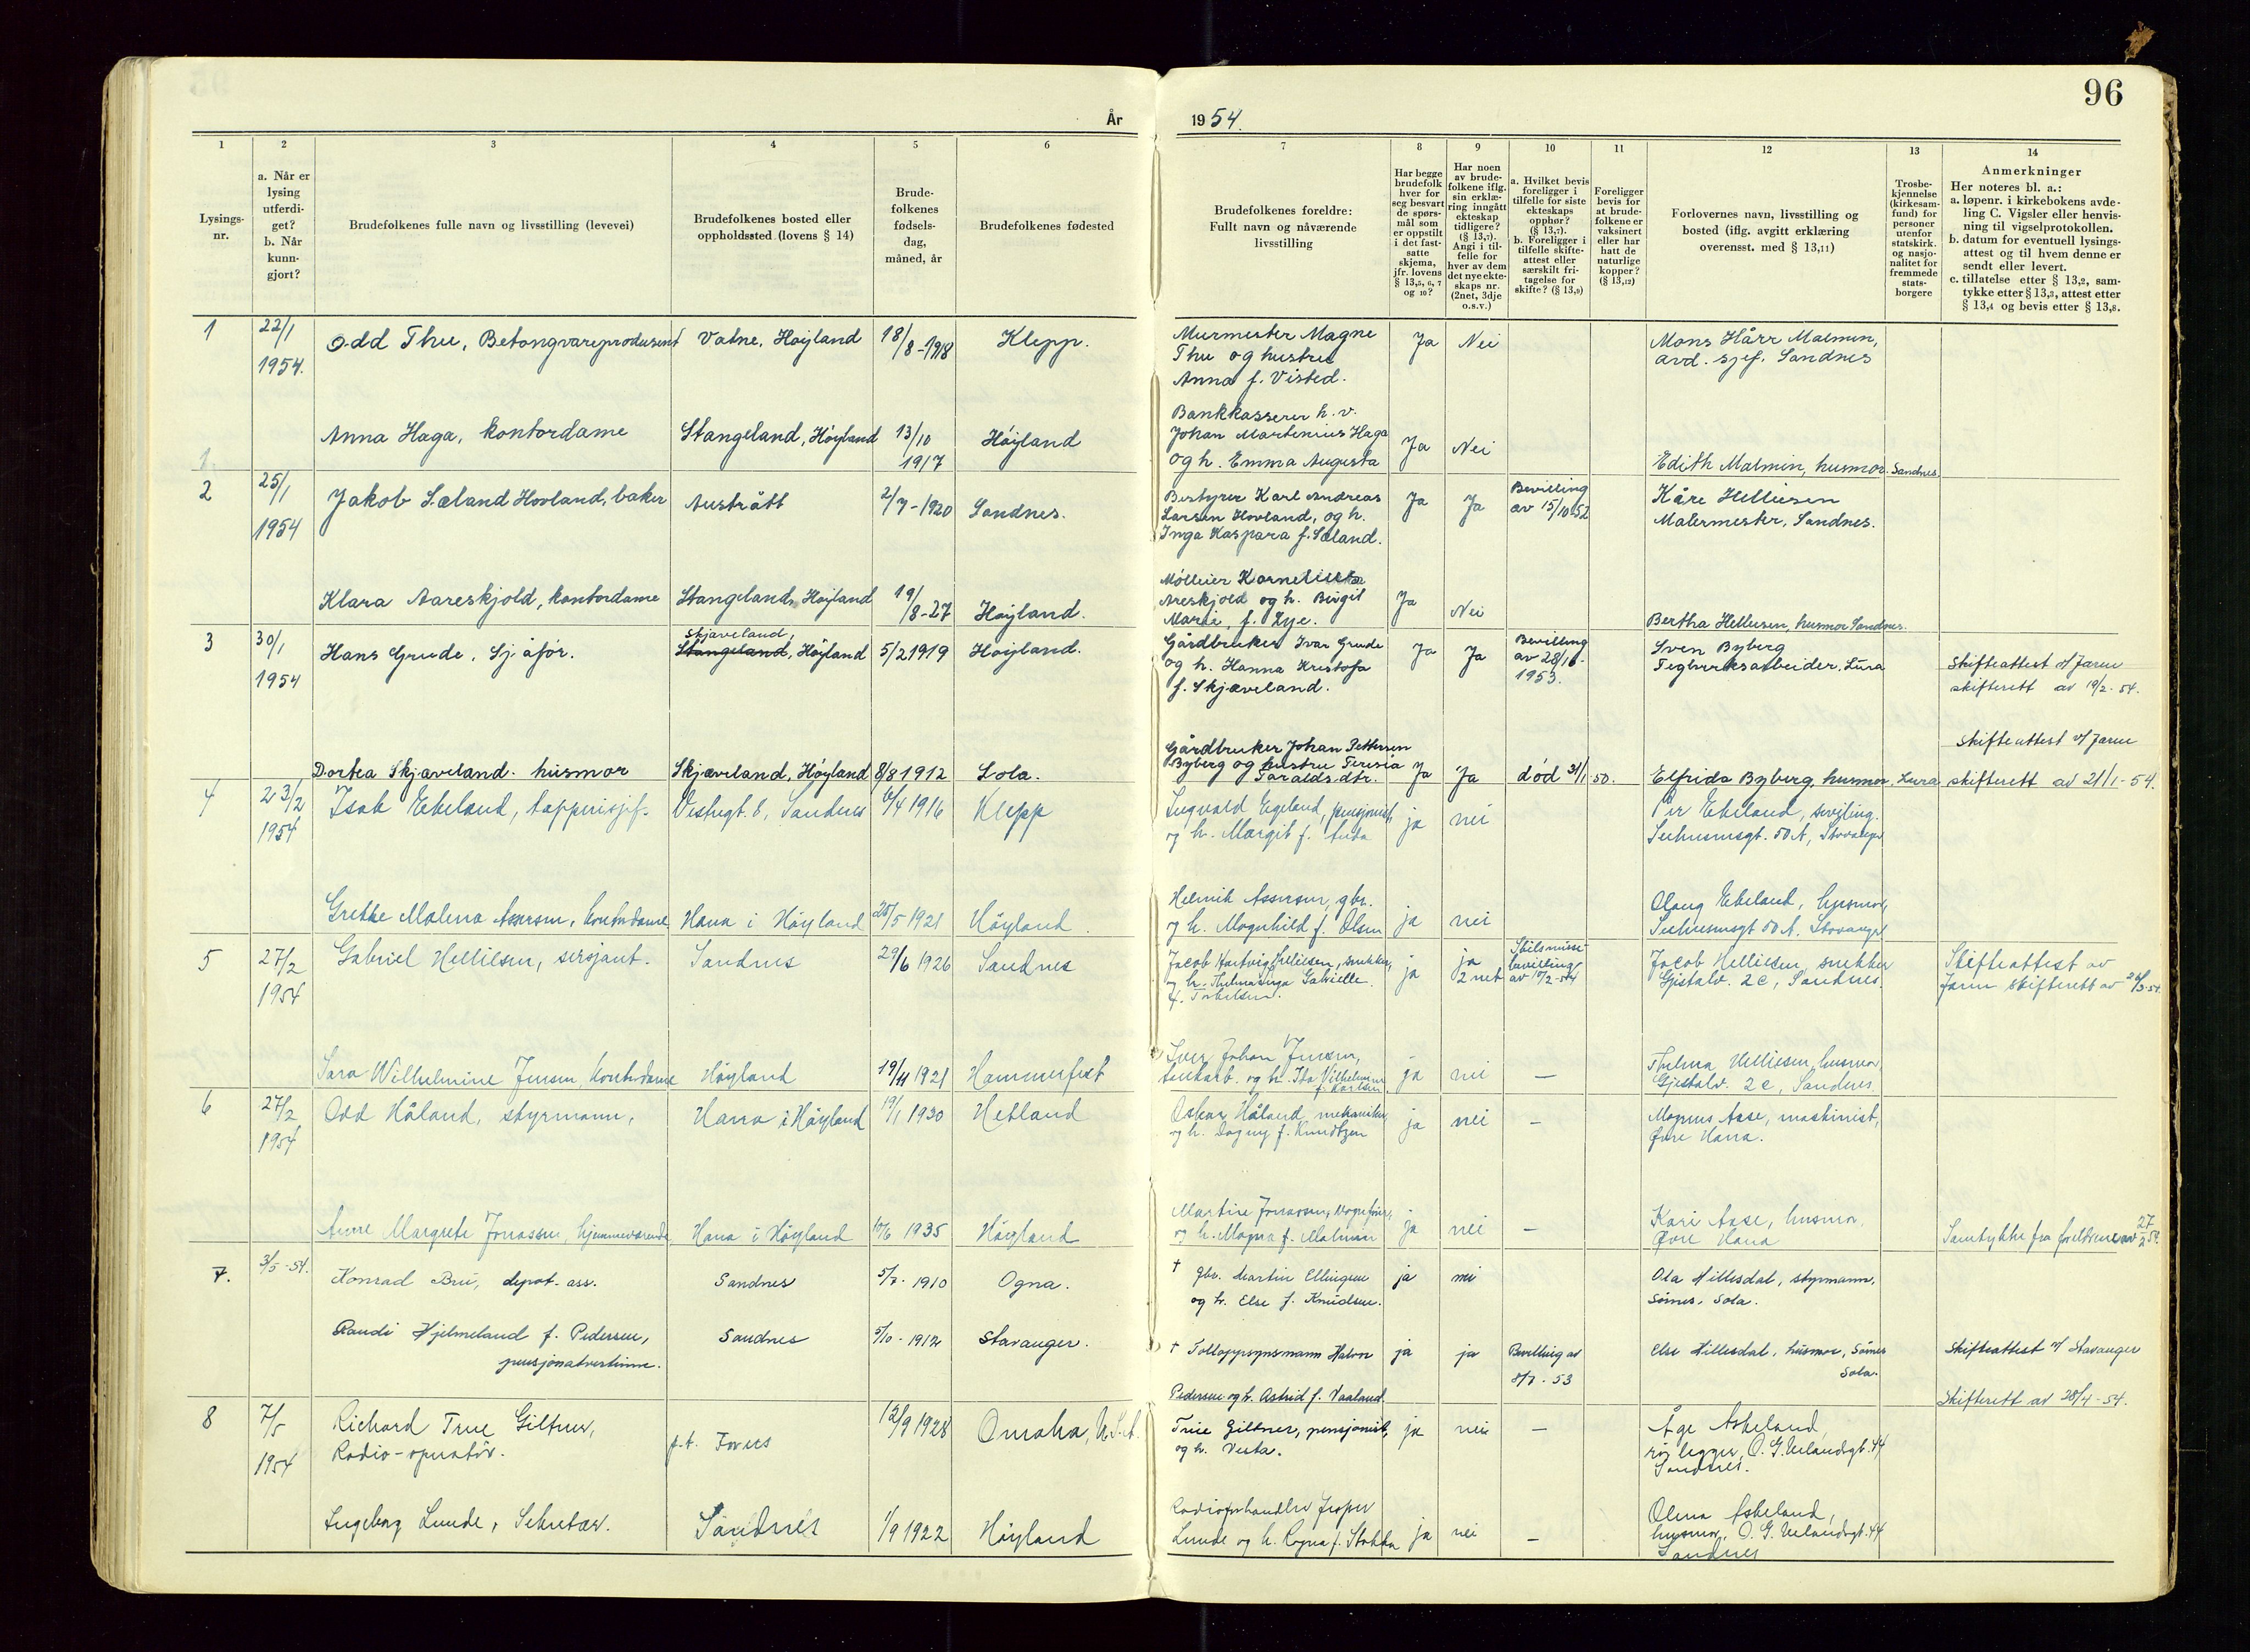 96
År 1954.
1 2 3 4 5 6 7 8 9 10 11 12 13 14
Lysings-
nr.
a. Når er
lysing
utferdi-
get?
b. Når
kunn-
gjort?
Brudefolkenes fulle navn og livsstilling (levevei)
Brudefolkenes bosted eller
oppholdssted (lovens § 14)
Brude-
folkenes
fødsels-
dag,
måned, år
Brudefolkenes fødested
Brudefolkenes foreldre:
Fullt navn og nåværende
livsstilling
Har begge
brudefolk
hver for
seg besvart
de spørs-
mål som
er oppstilt
i det fast-
satte
skjema,
jfr. lovens
§ 13,5, 6, 7
og 10?
Har noen
av brude-
folkene iflg.
sin erklæ-
ring inngått
ekteskap
tidligere?
(§ 13,7).
Angi i til-
felle for
hver av dem
det nye ekte-
skaps nr.
(2net, 3dje
o.s.v.)
a. Hvilket bevis
foreligger i
tilfelle for siste
ekteskaps
opphør?
(§ 13,7).
b. Foreligger i
tilfelle skifte-
attest eller
særskilt fri-
tagelse for
skifte? (§ 13,9)
Foreligger
bevis for
at brude-
folkene er
vaksinert
eller har
hatt de
naturlige
kopper?
(§ 13,12)
Forlovernes navn, livsstilling og
bosted (iflg. avgitt erklæring
overensst. med § 13,11)
Trosbe-
kjennelse
(kirkesam-
fund) for
personer
utenfor
statskirk.
og nasjo-
nalitet for
fremmede
stats-
borgere
Anmerkninger
Her noteres bl. a.:
a. løpenr. i kirkebokens avde-
ling C. Vigsler eller henvis-
ning til vigselprotokollen.
b. datum for eventuell lysings-
attest og til hvem denne er
sendt eller levert.
c. tillatelse etter § 13,2, sam-
tykke etter § 13,3, attest etter
§ 13,4 og bevis etter § 13,8.
1 22/1 1954. Odd Thu, Betongvareprodusent Vatne, Høyland 18/8-1918 Klepp.
Murmester Magne
Thu og hustru
Anna f. Visted.
Ja Nei
Mons Hårr Malmin,
avd. sjef. Sandnes
1. Anna Haga, kontordame Stangeland, Høyland 13/10 1917 Høyland
Bankkasserer h. v.
Johan Martinius Haga
og h. Emma Augusta
Ja Nei
Edith Malmin, husmor. Sandnes
2 25/1 1954 Jakob Sæland Hovland, baker Austrått 2/7-1920 Sandnes.
Bestyrer Karl Andreas
Larsen Hovland, og h.
Inga Kaspara f. Sæland.
Ja Ja
Bevilling
av 15/10 52
Kåre Helliesen
Malermester, Sandnes.
Klara Aareskjold, kontordame Stangeland, Høyland 19/8-27 Høyland.
Mølleier Kornelius
Areskjold og h. Birgit
Marie, f. Lye.
Ja Nei
Bertha Helliesen, husmor Sandnes.
3 30/1 1954 Hans Grude, Sjåfør.
Skjæveland,
Stangeland, Høyland 5/2 1919 Høyland.
Gårdbruker Ivar Grude
og h. Hanna Kristofa
f. Skjæveland.
Ja Ja
Bevilling
av 28/10-
1953.
Sven Byberg
Teglverksarbeider. Lura
Skifteattest v/ Jæren
skifterett av 19/2-54.
Dortea Skjæveland. husmor Skjæveland, Høyland 8/8 1912 Sola.
Gårdbruker Johan Pettersen
Byberg og hustru Teresia
Taraldsdtr.
Ja Ja død 31/1 50.
Elfrida Byberg, husmor. Lura
Skifteattest v/ Jæren
skifterett av 21/1-54.
4 23/2 1954 Isak Ekeland, tapperisjef. Vestregt. 8, Sandnes 6/4 1916 Klepp
Sigvald Egeland, pensjonist,
og h. Margit f. Auda
ja nei
Per Ekeland,
Seehusensgt. 50 A, Stavanger
Grethe Malena Assersen, kontordame Hana i Høyland 25/5 1921 Høyland
Helmik Assersen, gbr.
og h. Magnhild f. Olsen
ja nei
Olaug Ekeland, husmor,
Seehusensgt 50 A. Stavanger
5 27/2 1954 Gabriel Helliesen, sersjant. Sandnes 29/6 1926 Sandnes
Jacob Hartvig Helliesen, snekker,
og h. Thelma Inga Gabrielle
f. Torkelsen.
ja ja 2 net
Skilsmisse-
bevilling
av 10/2-54
Jacob Helliesen, snekker
Gjestalv. 2c, Sandnes.
Skifteattest av
Jæren skifterett av 26/3-54.
Sara Wilhelmine Jensen, kontordame Høyland 19/11 1921 Hammerfest
Iver Johan Jensen,
og h. Ida Vilhelmine
f. Karlsen
ja nei —
Thelma Helliesen, husmor,
Gjestalv. 2c, Sandnes.
6 27/2 1954 Odd Håland, styrmann, Hana i Høyland 19/1 1930 Hetland
Oskar Håland, mekaniker,
og h. Dagny f. Knudtzen
ja nei —
Magnus Aase, maskinist,
Øvre Hana.
Anne Margrete Jonassen, hjemmeværende Hana i Høyland 10/6 1935 Høyland
Martin Jonassen,
og h. Magna f. Malmin
ja nei —
Kari Aase, husmor,
Øvre Hana
Samtykke fra foreldrene av 27/2 54.
7. 3/5-54. Konrad Bru, depot. ass. Sandnes 5/7-1910 Ogna.
† gbr. Martin Ellingsen
og h. Else f. Knudsen.
ja nei
Ola Hillesdal, styrmann,
Sömes, Sola.
Randi Hjelmeland f. Pedersen,
pensjonatvertinne.
Sandnes 5/10-1912 Stavanger.
† Tolloppsynsmann Halvor
Pedersen og h. Astrid f. Vaaland.
ja ja
Bevilling av
8/7-53
Else Hillesdal, husmor, Sömes
Sola.
Skifteattest v/ Stavanger
Skifterett av 28/4-54.
8 7/5 1954 Richard True Giltner,
Radio-operatör.
p.t. Forus 12/9 1928 Omaha, U.S.A.
True Giltner, pensjonist,
og h. Vesta.
ja nei —
Åge Askeland,
rørlegger, O. G. Uelandsgt. 44
Sandnes.
Ingeborg Lunde, Sekretær. Sandnes 1/9 1922 Høyland
Radioforhandler Jesper
Lunde og h. Ragna f. Stokka
ja nei —
Olena Askeland,
husmor, O. G. Uelandsgt. 44
Sandnes